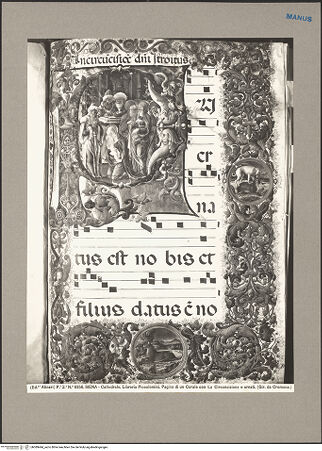 MANUS
In circũcisioẽ dñi Itroitus
P V
er
na
tus est no bis et
filius datus ẽ no
(Ed.ne Alinari) P.e 2.a N.o 9058. SIENA - Cattedrale, Libreria Piccolomini. Pagina di un Corale con La Circoncisione e ornati. (Gir. da Cremona.)